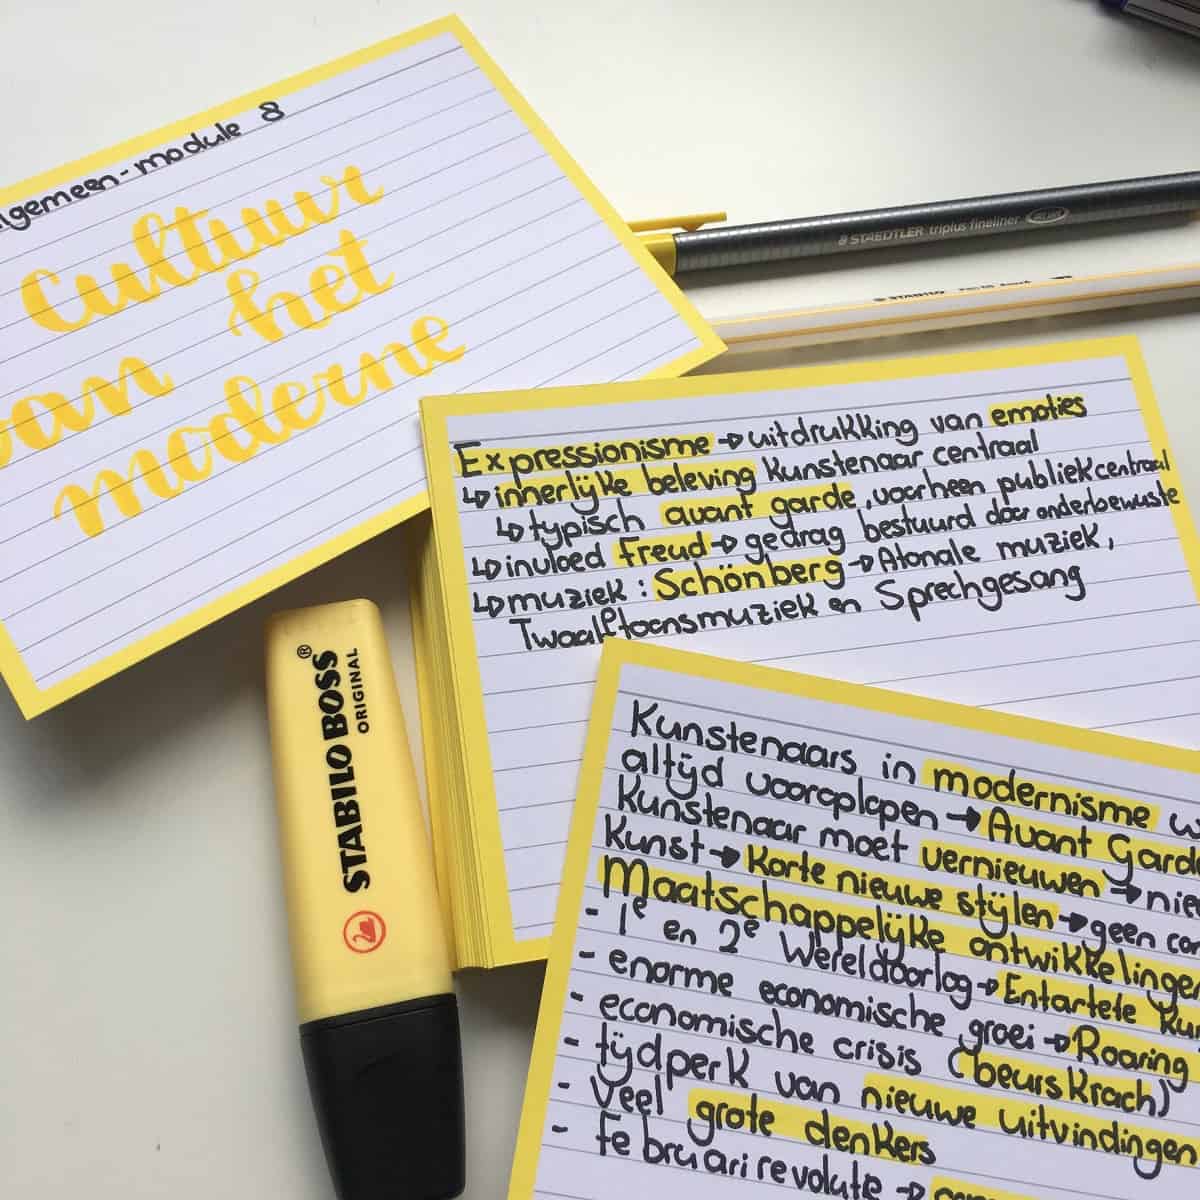 algemeen-module 8
Cultuur
van het
moderne
STAEDTLER triplus fineliner
STABILO
Expressionisme → uitdrukking van emoties
↳ innerlijke beleving kunstenaar centraal
↳ typisch avant garde, voorheen publiek centraal
↳ invloed Freud → gedrag bestuurd door onderbewuste
↳ muziek: Schönberg → Atonale muziek,
Twaalftoonsmuziek en Sprechgesang
STABILO BOSS®
ORIGINAL
Kunstenaars in modernisme
altijd vooroplopen → Avant Garde
Kunstenaar moet vernieuwen →
Kunst → Korte nieuwe stijlen → geen
Maatschappelijke ontwikkelingen
- 1e en 2e Wereldoorlog → Entartete
- enorme economische groei → Roaring
- economische crisis (beurskrach)
- tijdperk van nieuwe uitvindingen
- Veel grote denkers
- Februari revolutie →